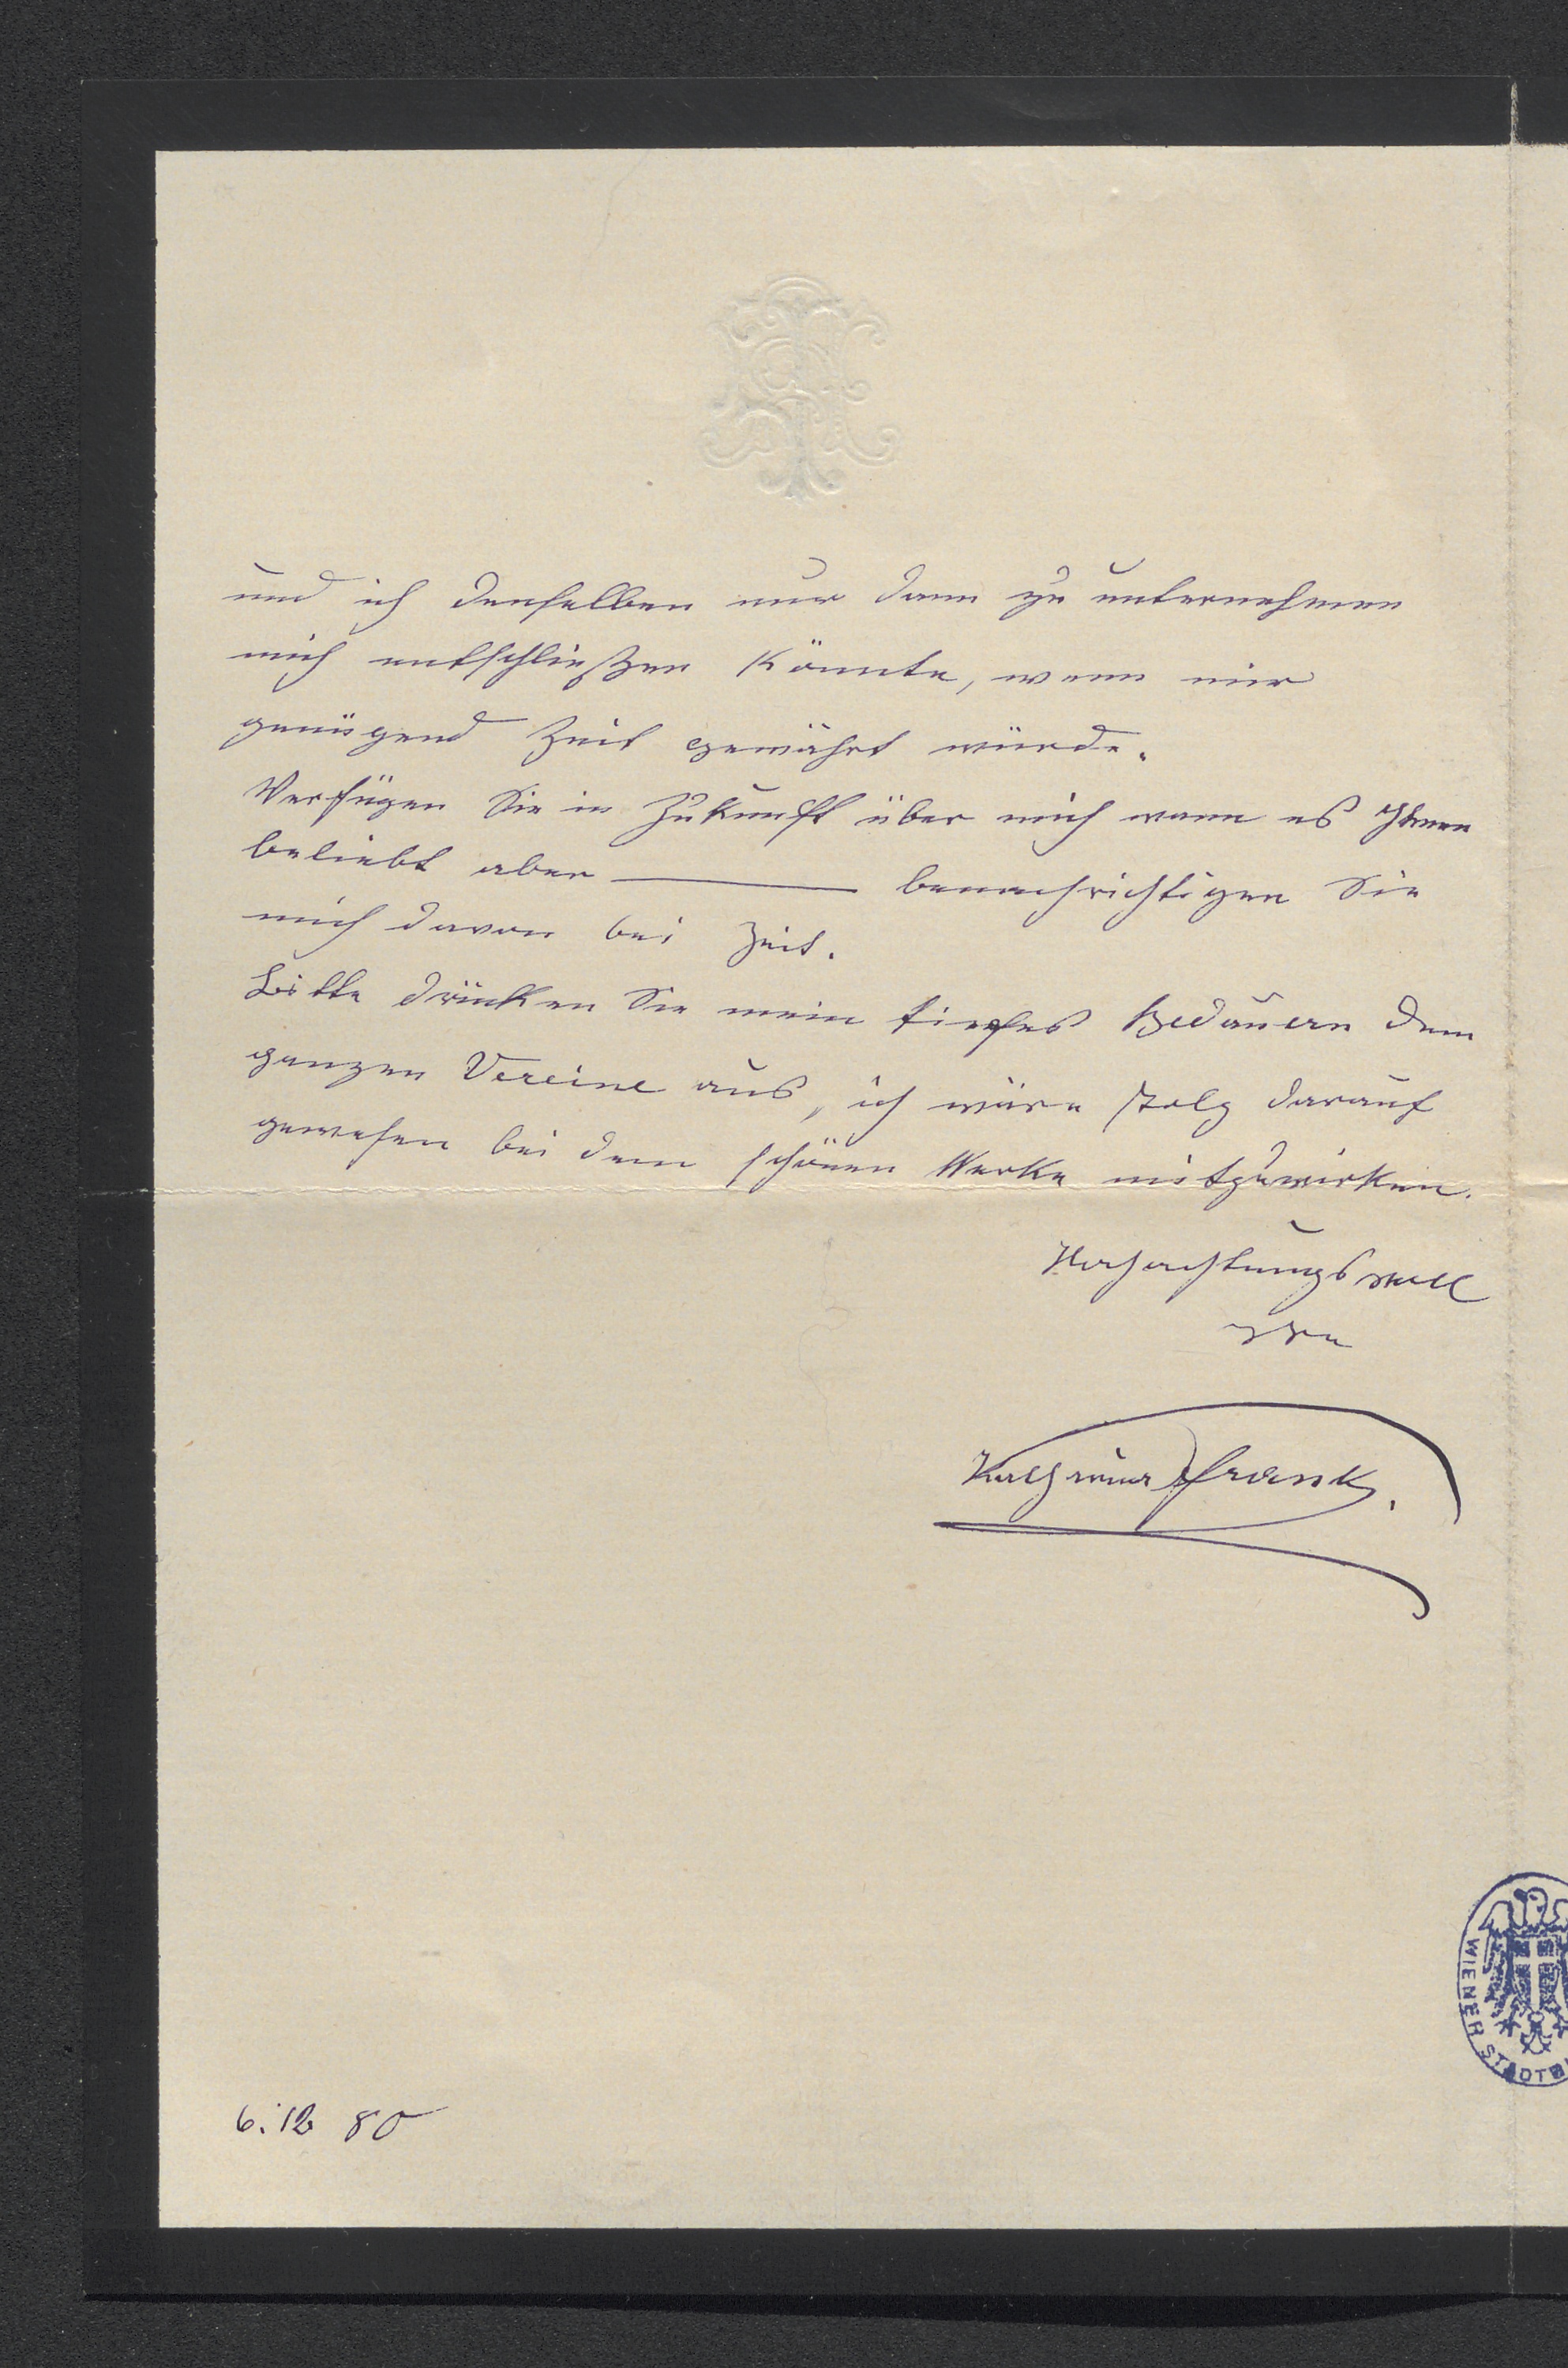 und ich denselben nur dann zu unternehmen
mich entschließen könnte, wenn mir
genügend Zeit gewährt würde.
Verfügen Sie in Zukunft über mich wann es Ihnen
beliebt aber — benachrichtigen Sie
mich davon bei Zeit.
Bitte drücken Sie mein tiefes Bedauern dem
ganzen Vereine aus, ich wäre stolz darauf
gewesen bei dem schönen Werke mitzuwirken.
Hochachtungsvoll
Ihre
Katharina Frank.
WIENER STADTB
6. 12 80